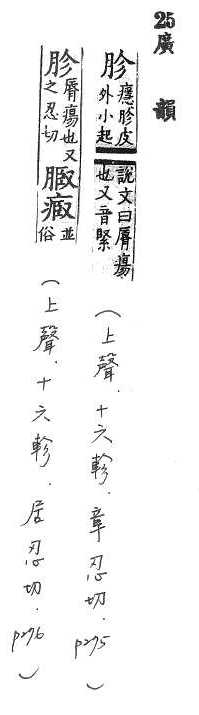 25廣　韻
胗癮胗皮外小起說文曰脣瘍也又音緊（上聲．十六軫．章忍切．p275）
胗脣瘍也又之忍切腵瘕並俗（上聲．十六軫．居忍切．p276）